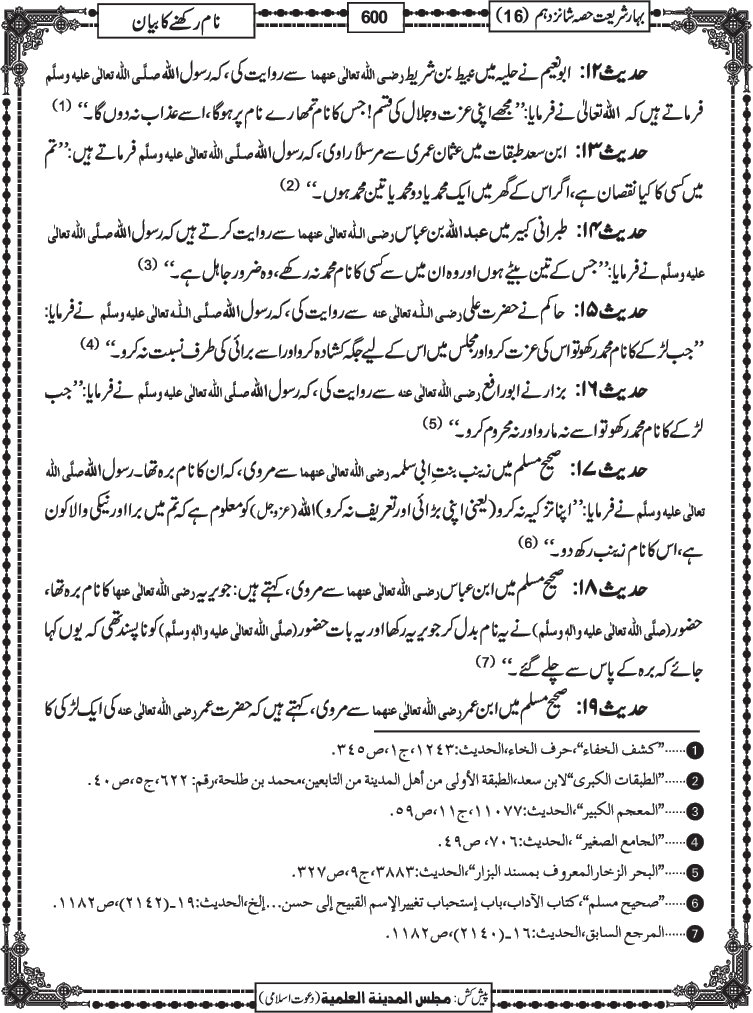 بہار شریعت حصہ شانزدہم (16)
600
نام رکھنے کا بیان
حدیث ۱۲: ابونعیم نے حلیہ میں نبیط بن شریط رضی اللہ تعالٰی عنہما سے روایت کی، کہ رسول اللہ صلَّی اللہ تعالٰی علیہ وسلَّم
فرماتے ہیں کہ اللہ تعالیٰ نے فرمایا: ’’مجھے اپنی عزت و جلال کی قسم! جس کا نام تمھارے نام پر ہوگا، اسے عذاب نہ دوں گا۔‘‘ (1)
حدیث ۱۳: ابن سعد طبقات میں عثمان عمری سے مرسلاً راوی، کہ رسول اللہ صلَّی اللہ تعالٰی علیہ وسلَّم فرماتے ہیں: ’’تم
میں کسی کا کیا نقصان ہے، اگر اس کے گھر میں ایک محمد یا دو محمد یا تین محمد ہوں۔‘‘ (2)
حدیث ۱۴: طبرانی کبیر میں عبداللہ بن عباس رضی اللہ تعالٰی عنہما سے روایت کرتے ہیں کہ رسول اللہ صلَّی اللہ تعالٰی
علیہ وسلَّم نے فرمایا: ’’جس کے تین بیٹے ہوں اور وہ ان میں سے کسی کا نام محمد نہ رکھے، وہ ضرور جاہل ہے۔‘‘ (3)
حدیث ۱۵: حاکم نے حضرت علی رضی اللہ تعالٰی عنہ سے روایت کی، کہ رسول اللہ صلَّی اللہ تعالٰی علیہ وسلَّم نے فرمایا:
’’جب لڑکے کا نام محمد رکھو تو اس کی عزت کرو اور مجلس میں اس کے لیے جگہ کشادہ کرو اور اسے برائی کی طرف نسبت نہ کرو۔‘‘ (4)
حدیث ۱۶: بزار نے ابو رافع رضی اللہ تعالٰی عنہ سے روایت کی، کہ رسول اللہ صلَّی اللہ تعالٰی علیہ وسلَّم نے فرمایا: ’’جب
لڑکے کا نام محمد رکھو تو اسے نہ مارو اور نہ محروم کرو۔‘‘ (5)
حدیث ۱۷: صحیح مسلم میں زینب بنتِ ابی سلمہ رضی اللہ تعالٰی عنہما سے مروی، کہ ان کا نام برہ تھا۔ رسول اللہ صلَّی اللہ
تعالٰی علیہ وسلَّم نے فرمایا: ’’اپنا تزکیہ نہ کرو (یعنی اپنی بڑائی اور تعریف نہ کرو) اللہ (عزوجل) کو معلوم ہے کہ تم میں برا اور نیکی والا کون
ہے، اس کا نام زینب رکھ دو۔‘‘ (6)
حدیث ۱۸: صحیح مسلم میں ابن عباس رضی اللہ تعالٰی عنہما سے مروی، کہتے ہیں: جویریہ رضی اللہ تعالٰی عنہا کا نام برہ تھا،
حضور (صلَّی اللہ تعالٰی علیہ والہٖ وسلَّم) نے یہ نام بدل کر جویریہ رکھا اور یہ بات حضور (صلَّی اللہ تعالٰی علیہ والہٖ وسلَّم) کو ناپسند تھی کہ یوں کہا
جائے کہ برہ کے پاس سے چلے گئے۔‘‘ (7)
حدیث ۱۹: صحیح مسلم میں ابن عمر رضی اللہ تعالٰی عنہما سے مروی، کہتے ہیں کہ حضرت عمر رضی اللہ تعالٰی عنہ کی ایک لڑکی کا
1 ......”کشف الخفاء“، حرف الخاء، الحدیث: ۱۲۴۳، ج۱، ص۳۴۵.
2 ......”الطبقات الکبری“ لابن سعد، الطبقة الأولی من أهل المدینة من التابعین، محمد بن طلحة، رقم: ۶۲۲، ج۵، ص۴۰.
3 ......”المعجم الکبیر“، الحدیث: ۱۱۰۷۷، ج۱۱، ص۵۹.
4 ......”الجامع الصغیر“، الحدیث: ۷۰۶، ص۴۹.
5 ......”البحر الزخار المعروف بمسند البزار“، الحدیث: ۳۸۸۳، ج۹، ص۳۲۷.
6 ......”صحیح مسلم“، کتاب الآداب، باب إستحباب تغییر الإسم القبیح إلی حسن...إلخ، الحدیث: ۱۹ـ(۲۱۴۲)، ص۱۱۸۲.
7 ......المرجع السابق، الحدیث: ۱۶ـ(۲۱۴۰)، ص۱۱۸۲.
پیش کش: مجلس المدینة العلمیة (دعوت اسلامی)